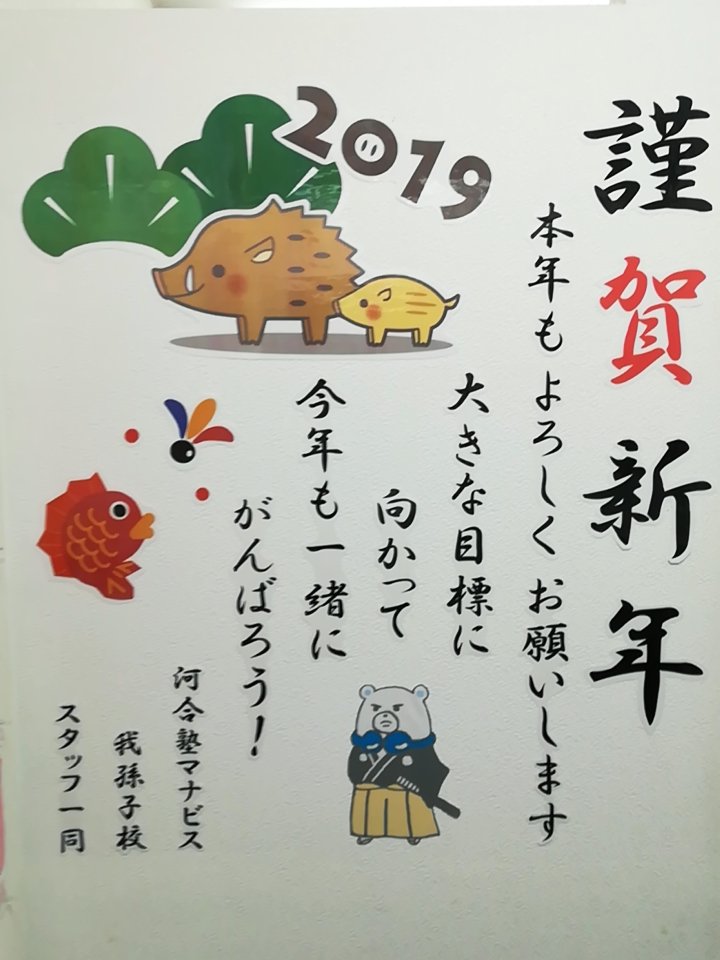 謹賀新年
本年もよろしくお願いします
大きな目標に
向かって
今年も一緒に
がんばろう！
河合塾マナビス
我孫子校
スタッフ一同
2019